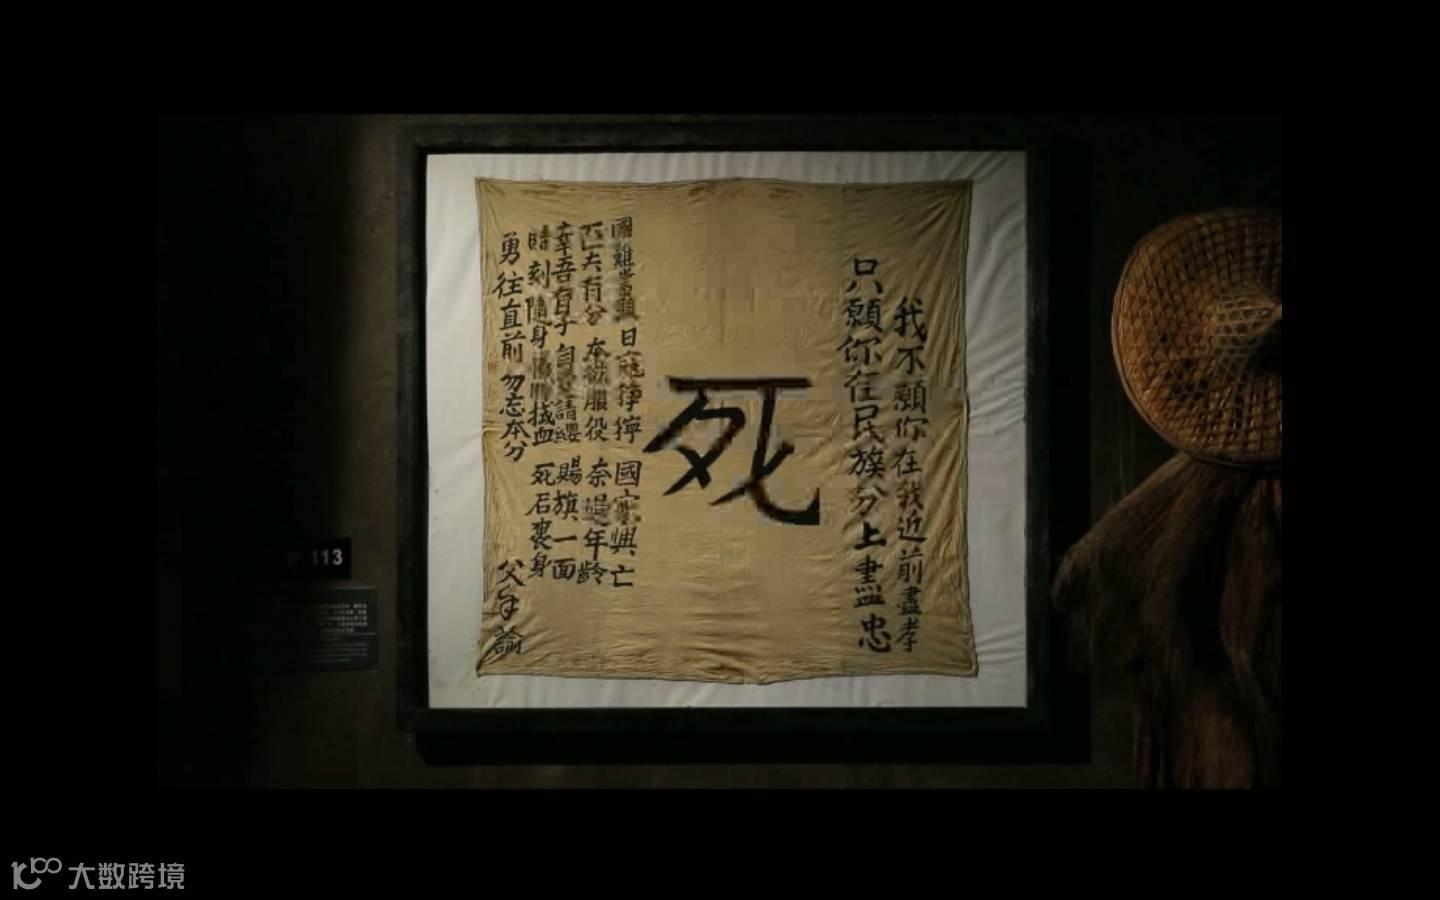 我不願你在我近前盡孝
只願你在民族分上盡忠
死
國難當頭 日寇猙獰 國家興亡
匹夫有分 本欲服役 奈過年齡
幸吾有子 自覺請纓 賜旗一面
刻隨身 拭血 死石裹身
勇往直前 勿忘本分
父手諭
113
大数跨境